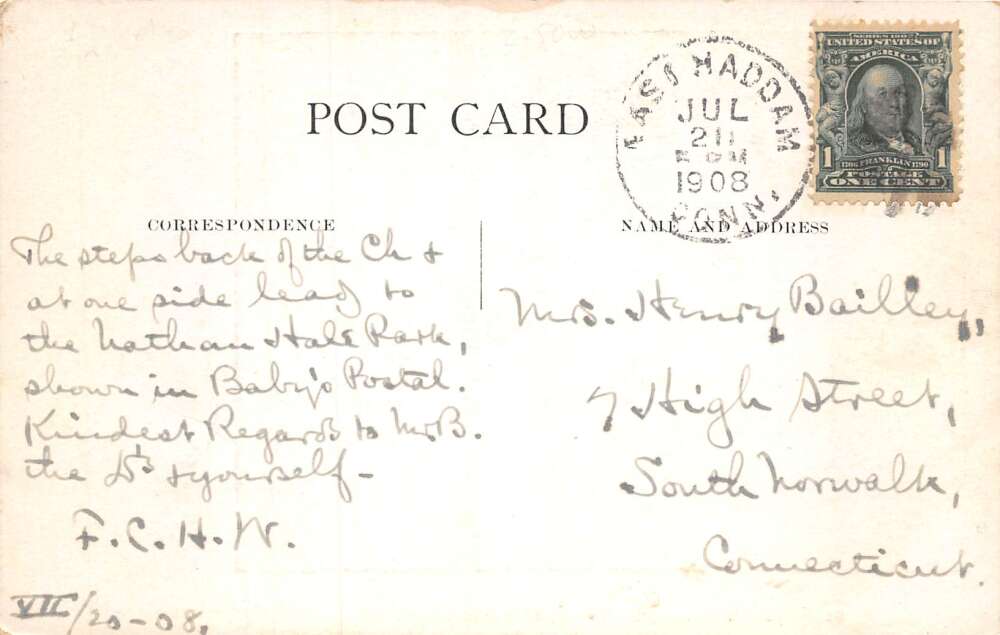 POST CARD
EAST HADDAM
JUL
21
1908
CONN.
SERIES 1902
UNITED STATES OF
AMERICA
1 1706 FRANKLIN 1790 1
POSTAGE
ONE CENT
CORRESPONDENCE
The steps back of the Ch &
at one side lead to
the Nathan Hale Park,
shown in Baby's Postal.
Kindest Regards to Mr. B.
the Drs & yourself –
F. C. H. W.
VII/20-08.
NAME AND ADDRESS
Mrs. Henry Bailley,
7 High Street,
South Norwalk,
Connecticut.